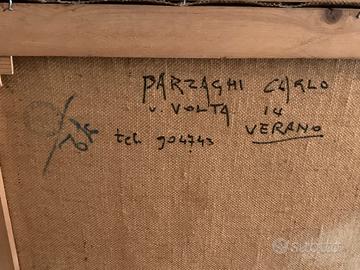 PARZAGHI CARLO
V. VOLTA 14
VERANO
tel. 904743
subito